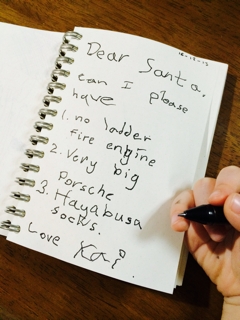 12-13-15
Dear Santa,
can I please
have
1. no ladder
fire engine
2. Very big
Porsche
3. Hayabusa
socks.
Love Kai